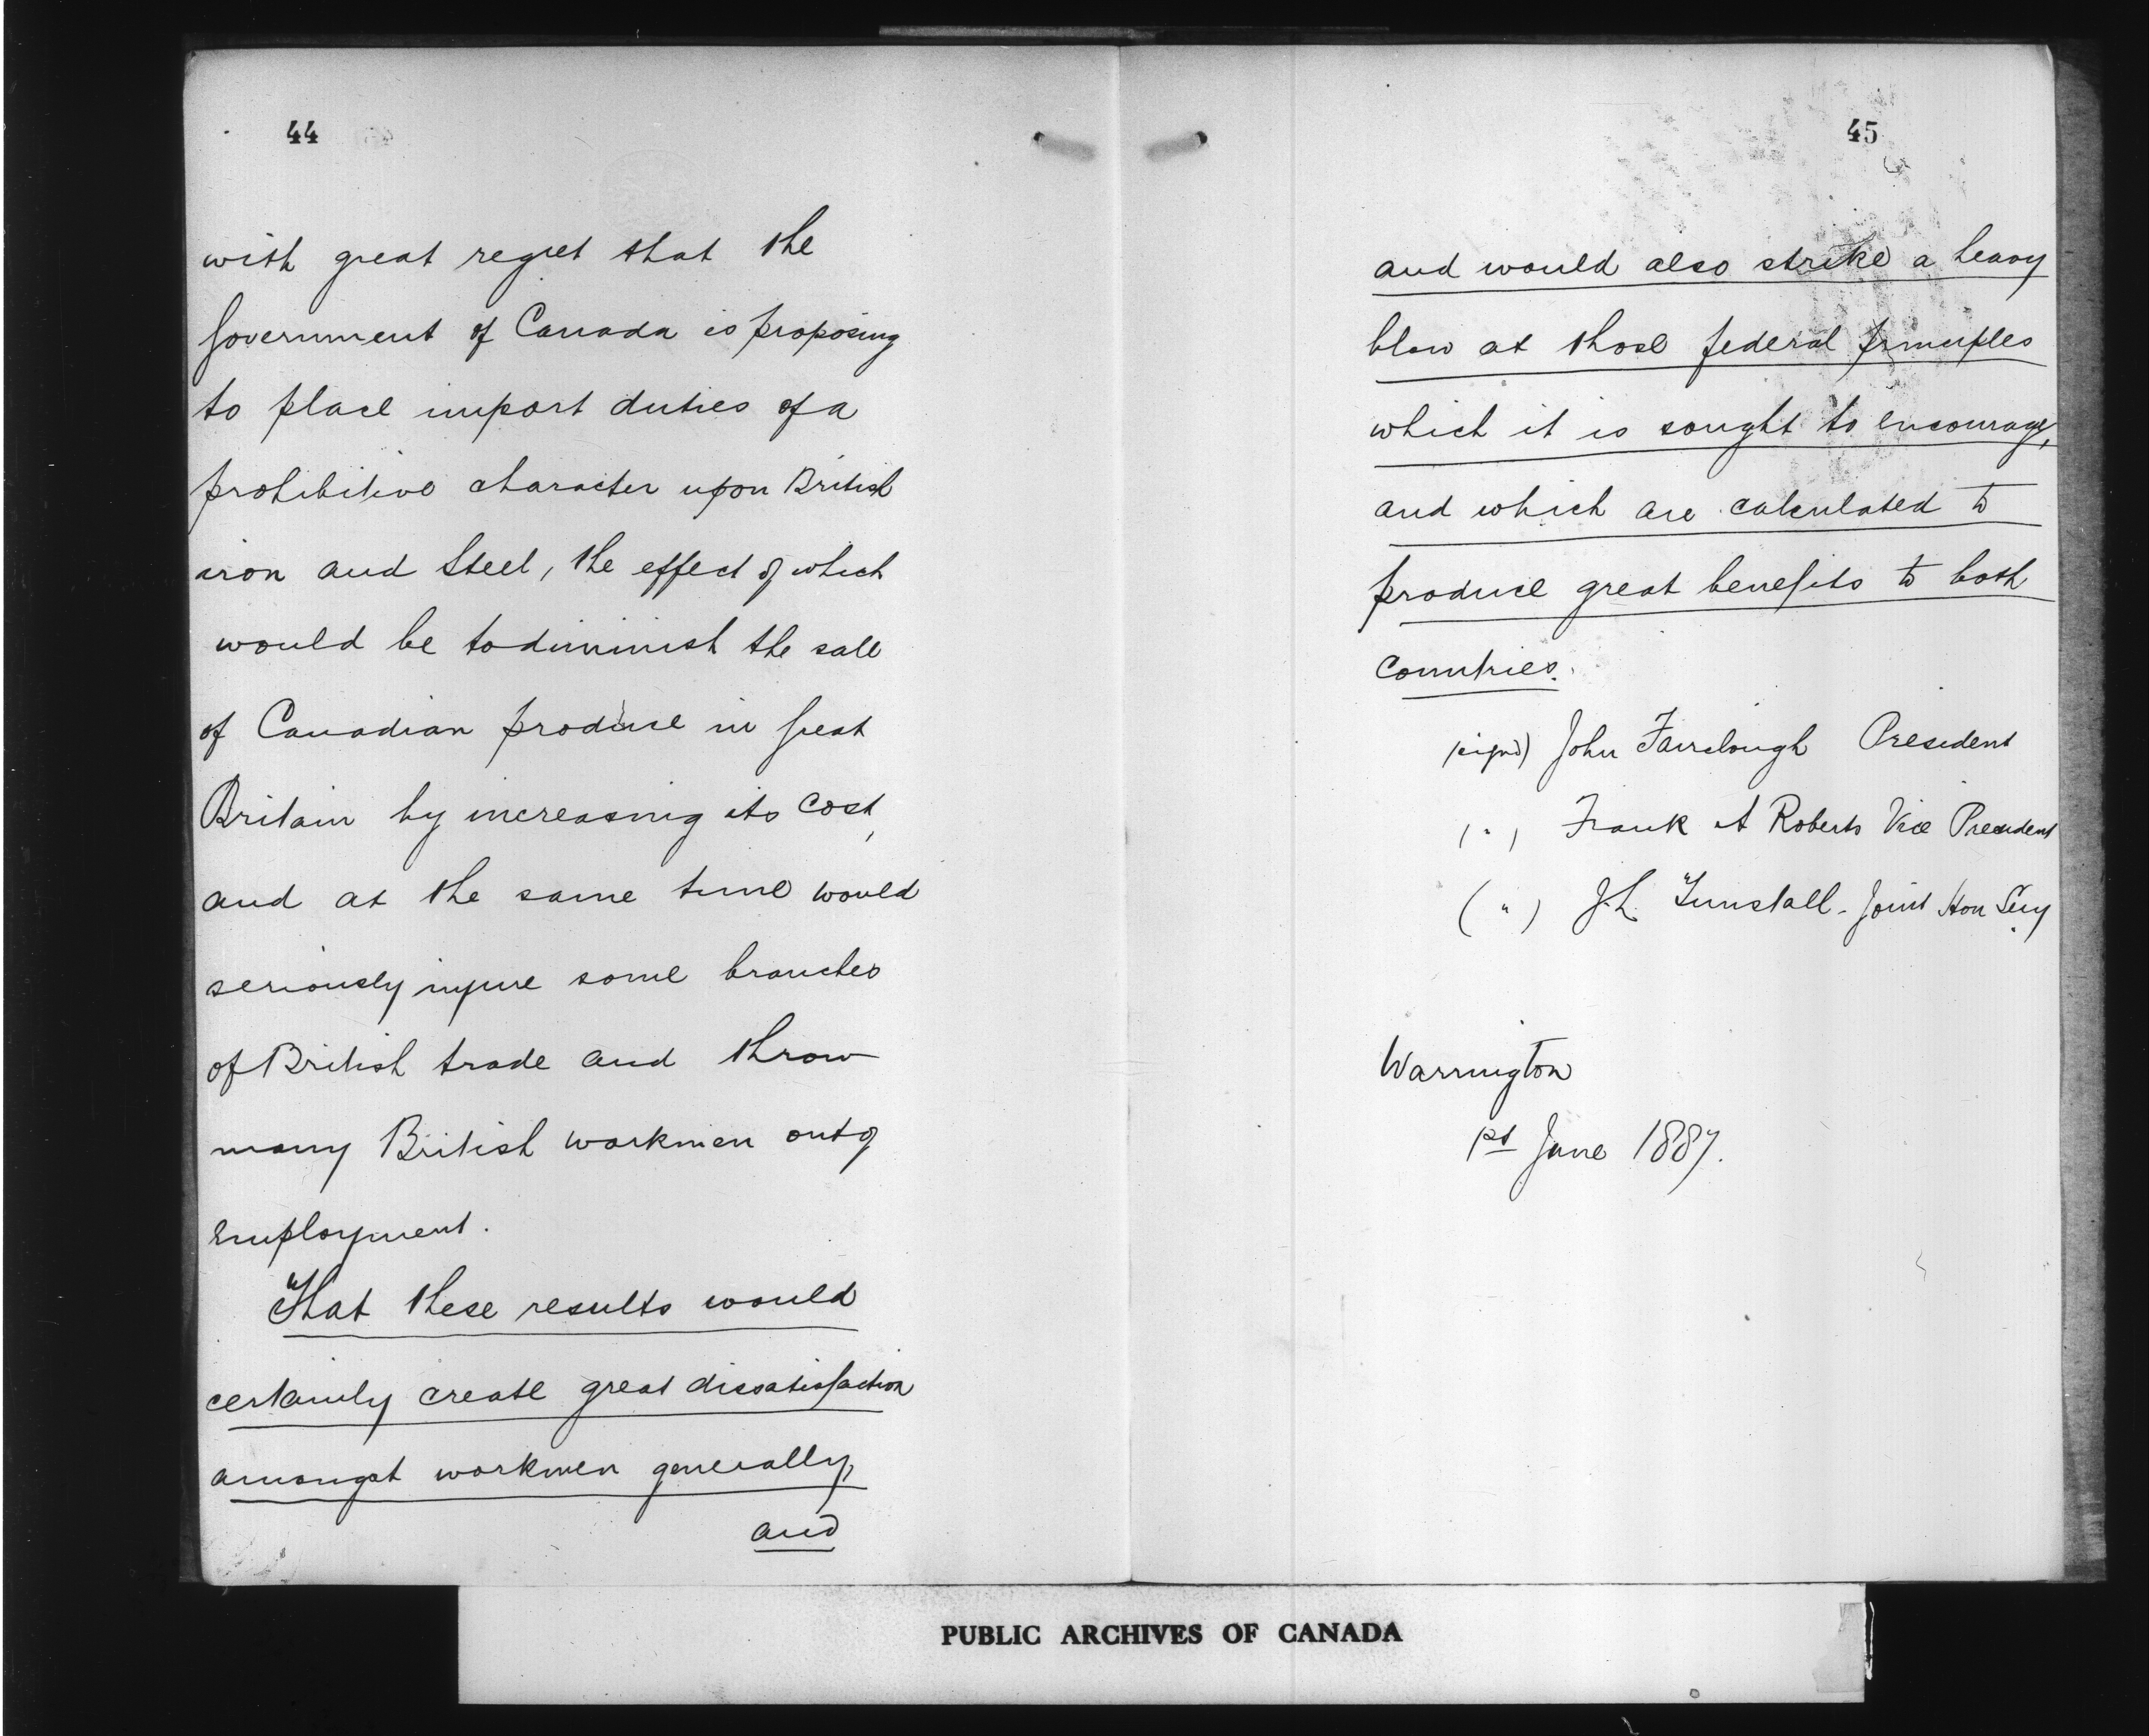 44
with great regret that the
Government of Canada is proposing
to place import duties of a
prohibitive character upon British
iron and Steel, the effect of which
would be to diminish the sale
of Canadian produce in Great
Britain by increasing its cost,
and at the same time would
seriously injure some branches
of British trade and throw
many British workmen out of
employment.
"That these results would
certainly create great dissatisfaction
amongst workmen generally,
and
45
and would also strike a heavy
blow at those federal principles
which it is sought to encourage,
and which are calculated to
produce great benefits to both
Countries.
(signd) John Fairclough President
( " ) Frank A Roberts Vice President
( " ) J.L. Tunstall - Joint Hon Secy
Warrington
1st June 1887.
PUBLIC ARCHIVES OF CANADA